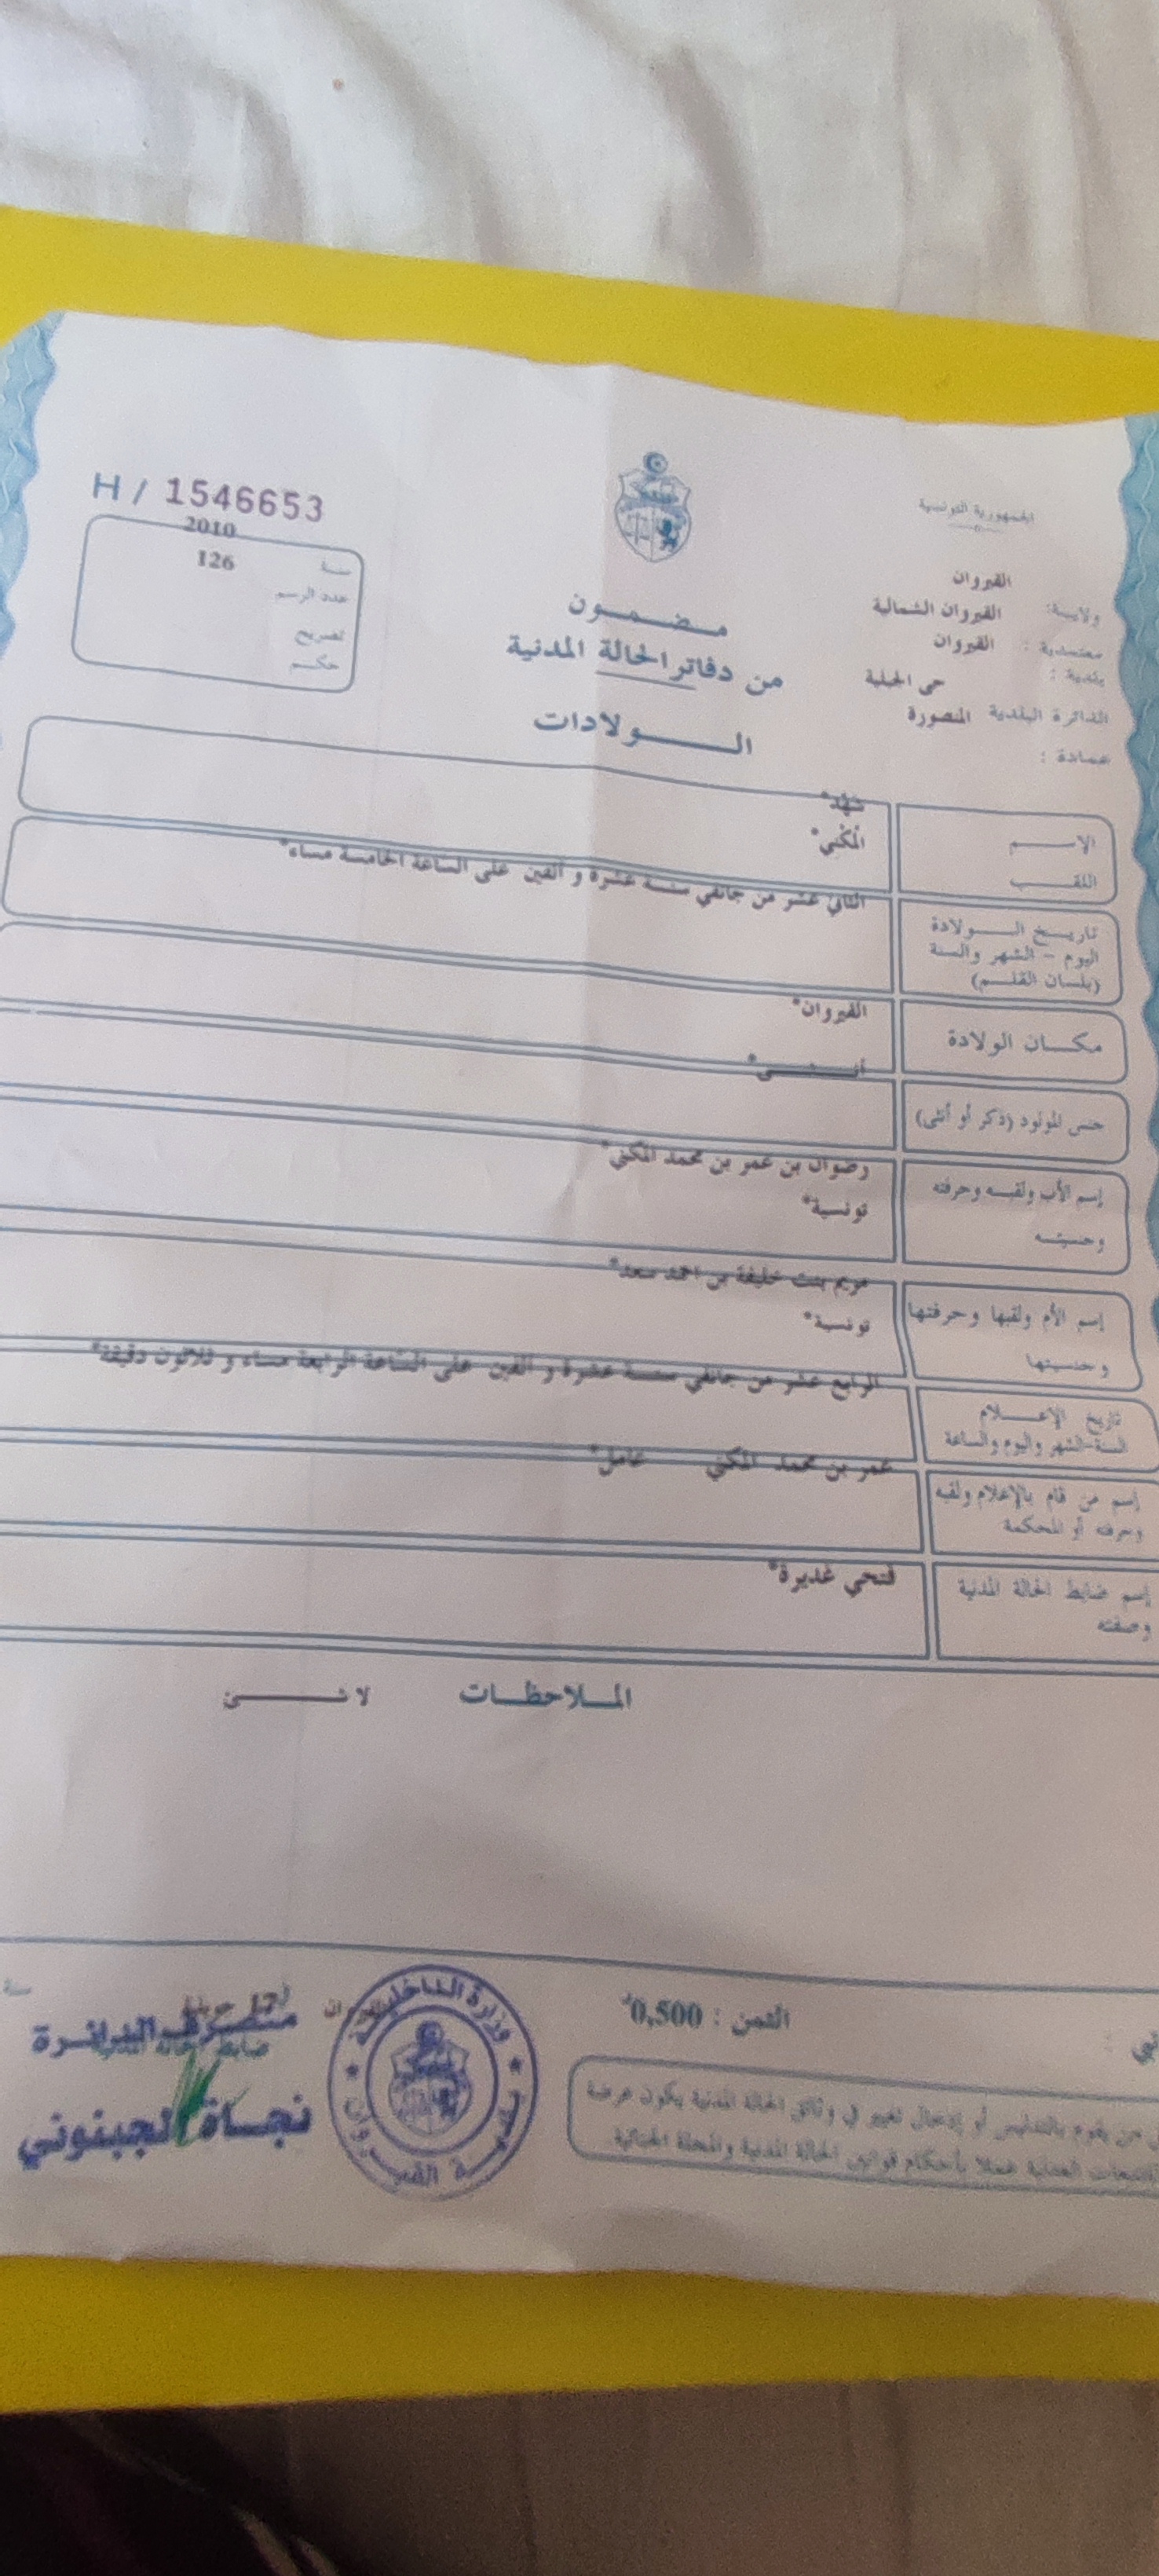 الجمهورية التونسية
H / 1546653
ولايـــة: القيروان
معتمدية : القيروان الشمالية
بلدية : القيروان
الدائرة البلدية حى الجبلية
عمادة : المنصورة
سنة 2010
عدد الرسم 126
تصريح
حكم
مضمون
من دفاتر الحالة المدنية
الولادات
الاسم شهد*
اللقب المكني*
تاريخ الولادة
اليوم - الشهر والسنة
(بلسان القلم)
الثاني عشر من جانفي سنة عشرة و ألفين على الساعة الخامسة مساء*
مكان الولادة القيروان*
جنس المولود (ذكر أو أنثى) أنثى*
إسم الأب ولقبه وحرفته رضوان بن عمر بن محمد المكني*
وجنسيته تونسية*
إسم الأم ولقبها وحرفتها مريم بنت خليفة بن احمد سعد*
وجنسيتها تونسية*
تاريخ الإعلام
السنة-الشهر واليوم والساعة
الرابع عشر من جانفي سنة عشرة و ألفين على الساعة الرابعة مساء و ثلاثون دقيقة*
إسم من قام بالإعلام ولقبه
وحرفته أو المحكمة
عمر بن محمد المكني عامل*
إسم ضابط الحالة المدنية
وصفته
فتحي غديرة*
الملاحظات لا شئ
الثمن : 0,500د
من يقوم بالتدليس أو إدخال تغيير في وثائق الحالة المدنية يكون عرضة
للتتبعات العدلية عملا بأحكام قوانين الحالة المدنية والمجلة الجنائية
وزارة الداخلية
بلدية القيروان
17
سنة
متصرف الدائرة
نجاة الجبنوني